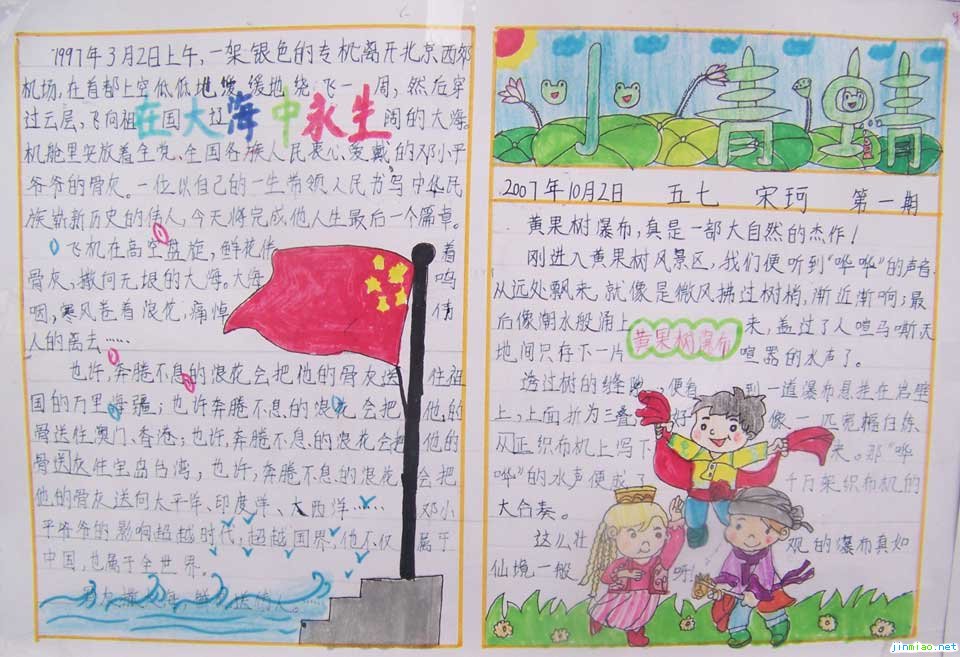 1997年3月2日上午,一架银色的专机离开北京西郊
机场,在首都上空低低地,缓缓地绕飞一周,然后穿
过云层,飞向祖国辽阔的大海。
在大海中永生
机舱里安放着全党、全国各族人民衷心爱戴的邓小平
爷爷的骨灰。一位以自己的一生带领人民书写中华民
族崭新历史的伟人,今天将完成他人生最后一个篇章。
飞机在高空盘旋,鲜花伴着
骨灰,撒向无垠的大海。大海呜
咽,寒风卷着浪花,痛悼伟
人的离去……
也许,奔腾不息的浪花会把他的骨灰送往祖
国的万里海疆;也许奔腾不息的浪花会把他的
骨送往澳门、香港;也许,奔腾不息的浪花会把他的
骨送灰往宝岛台湾;也许,奔腾不息的浪花会把
他的骨灰送向太平洋、印度洋、大西洋……邓小
平爷爷的影响超越时代,超越国界,他不仅属于
中国,也属于全世界。
小青蛙
2007年10月2日 五七 宋珂 第一期
黄果树瀑布,真是一部大自然的杰作!
刚进入黄果树风景区,我们便听到“哗哗”的声音
从远处飘来,就像是微风拂过树梢,渐近渐响;最
后像潮水般涌上来,盖过了人喧马嘶天
地间只存下一片喧嚣的水声了。
黄果树瀑布
透过树的缝隙,便看到一道瀑布悬挂在岩壁
上,上面折为三叠,好像一匹宽幅白练
从正织布机上泻下来。那“哗
哗”的水声便成了千万架织布机的
大合奏。
这么壮观的瀑布真如
仙境一般呀!
jinmiao.net